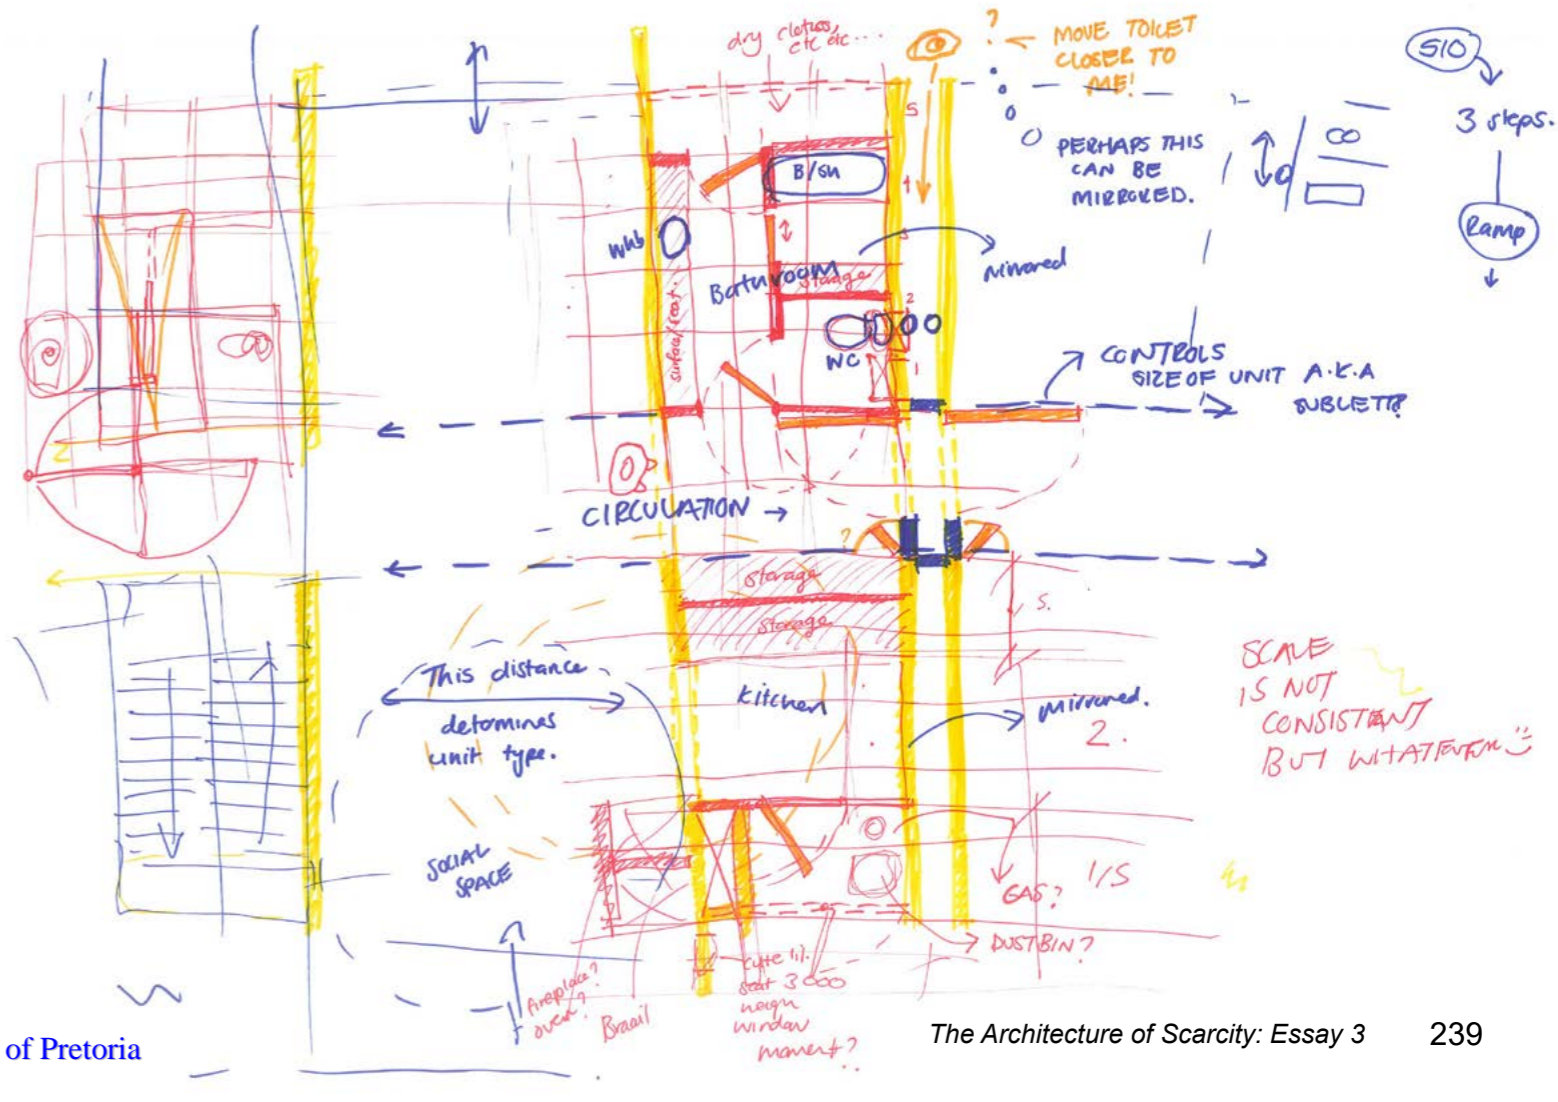 dry clothes,
etc etc...
?
MOVE TOILET
CLOSER TO
ME!
SIO
3 steps.
Ramp
PERHAPS THIS
CAN BE
MIRRORED.
S
B/SH
Whb
Bathroom
storage
surface/seat.
Mirrored
2
1
WC
CONTROLS
SIZE OF UNIT A.K.A
SUBLETT?
CIRCULATION →
?
storage
storage
S.
This distance
determines
unit type.
kitchen
mirrored.
2.
SCALE
IS NOT
CONSISTENT
BUT WHATEVER
SOCIAL
SPACE
GAS?
1/S
DUSTBIN?
fireplace?
oven?
Braai
cute lil
seat
window
moment?
of Pretoria
The Architecture of Scarcity: Essay 3 239